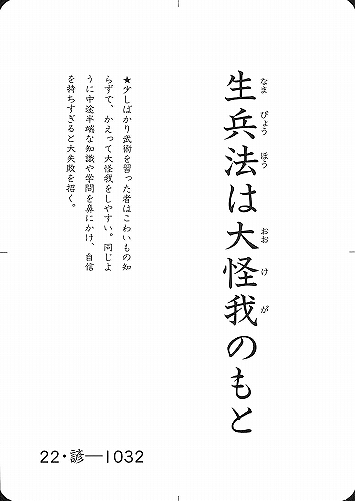 生兵法は大怪我のもと
なまびょうほう おおけが
★少しばかり武術を習った者はこわいもの知
らずで、かえって大怪我をしやすい。同じよ
うに中途半端な知識や学問を鼻にかけ、自信
を持ちすぎると大失敗を招く。
22・諺―1032